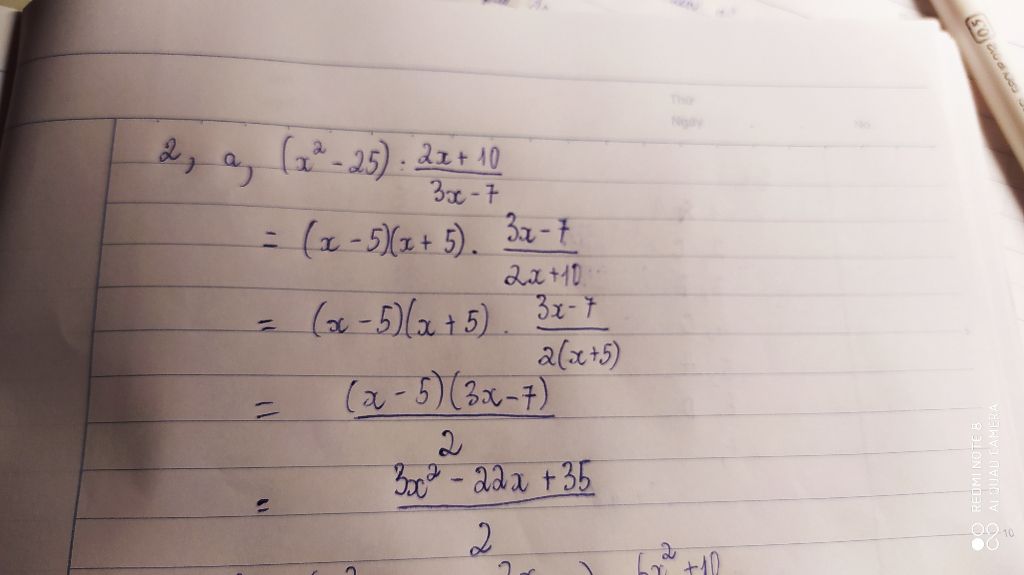 Thứ
Ngày No.
2, a, (x² - 25) : (2x + 10)/(3x - 7)
= (x - 5)(x + 5) . (3x - 7)/(2x + 10)
= (x - 5)(x + 5) . (3x - 7)/(2(x + 5))
= (x - 5)(3x - 7)/2
= (3x² - 22x + 35)/2
6x² + 10
REDMI NOTE 8
AI QUAD CAMERA
10